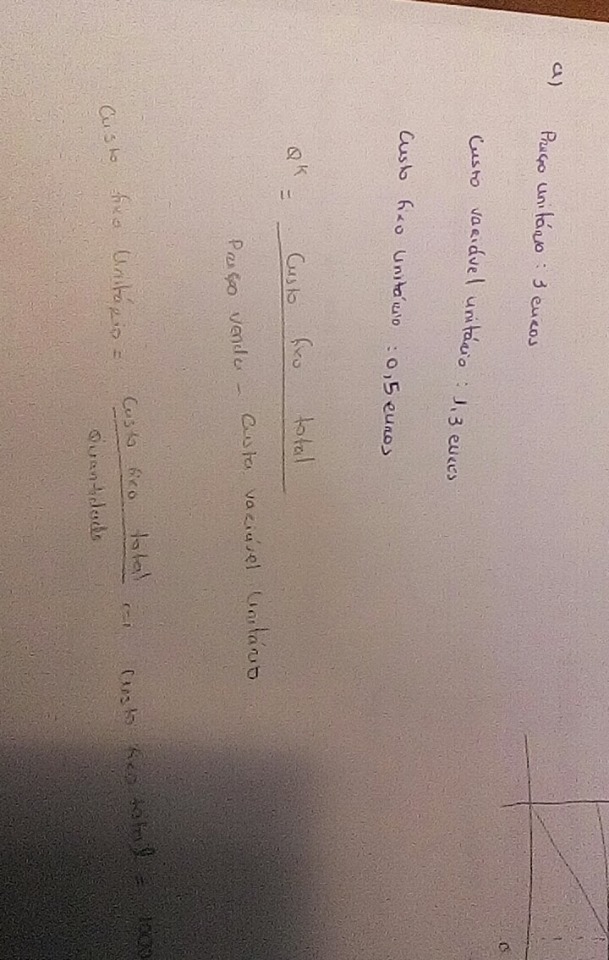 a) Preço unitário : 3 euros
Custo variável unitário : 1,3 euros
Custo fixo unitário : 0,5 euros
Q^K = Custo fixo total
Preço venda - Custo variável unitário
Custo fixo Unitário = Custo fixo total (=) Custo fixo total = 1000
Quantidade